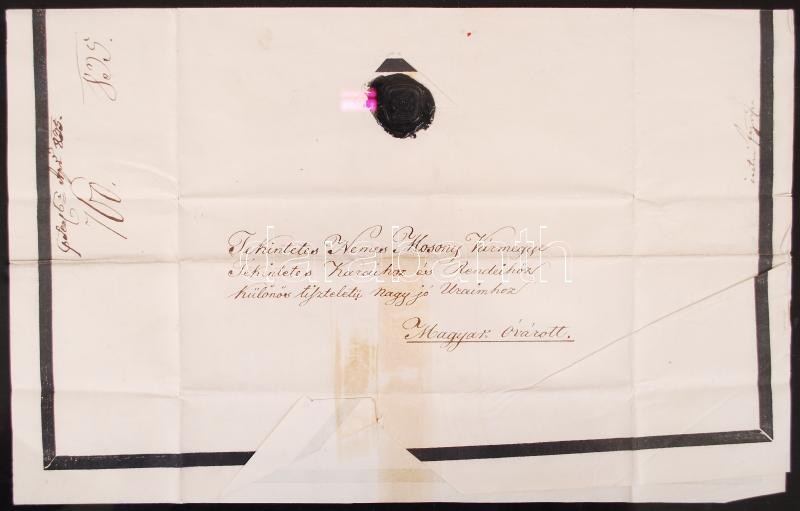 Tekintetes Nemes Mosony Vármegye
Tekintetes Karaihoz és Rendeihöz
különös tiszteletü nagy jó Uraimhoz
Magyar Óvárott.
835.
700.
darabanth